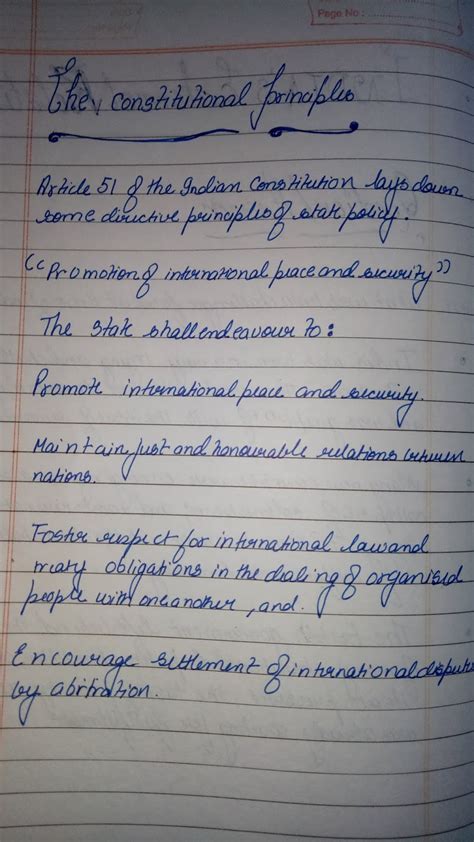 Page No :
The constitutional principles
Article 51 of the Indian Constitution lays down
some directive principles of state policy :
"Promotion of international peace and security"
The state shall endeavour to :
Promote international peace and security.
Maintain just and honourable relations between
nations.
Foster respect for international law and
treaty obligations in the dealing of organised
people with one another, and.
Encourage settlement of international dispute
by abitration.